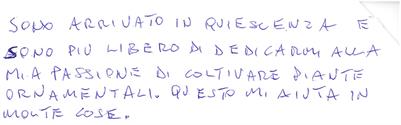 SONO ARRIVATO IN QUIESCENZA E
SONO PIÙ LIBERO DI DEDICARMI ALLA
MIA PASSIONE DI COLTIVARE PIANTE
ORNAMENTALI. QUESTO MI AIUTA IN
MOLTE COSE.